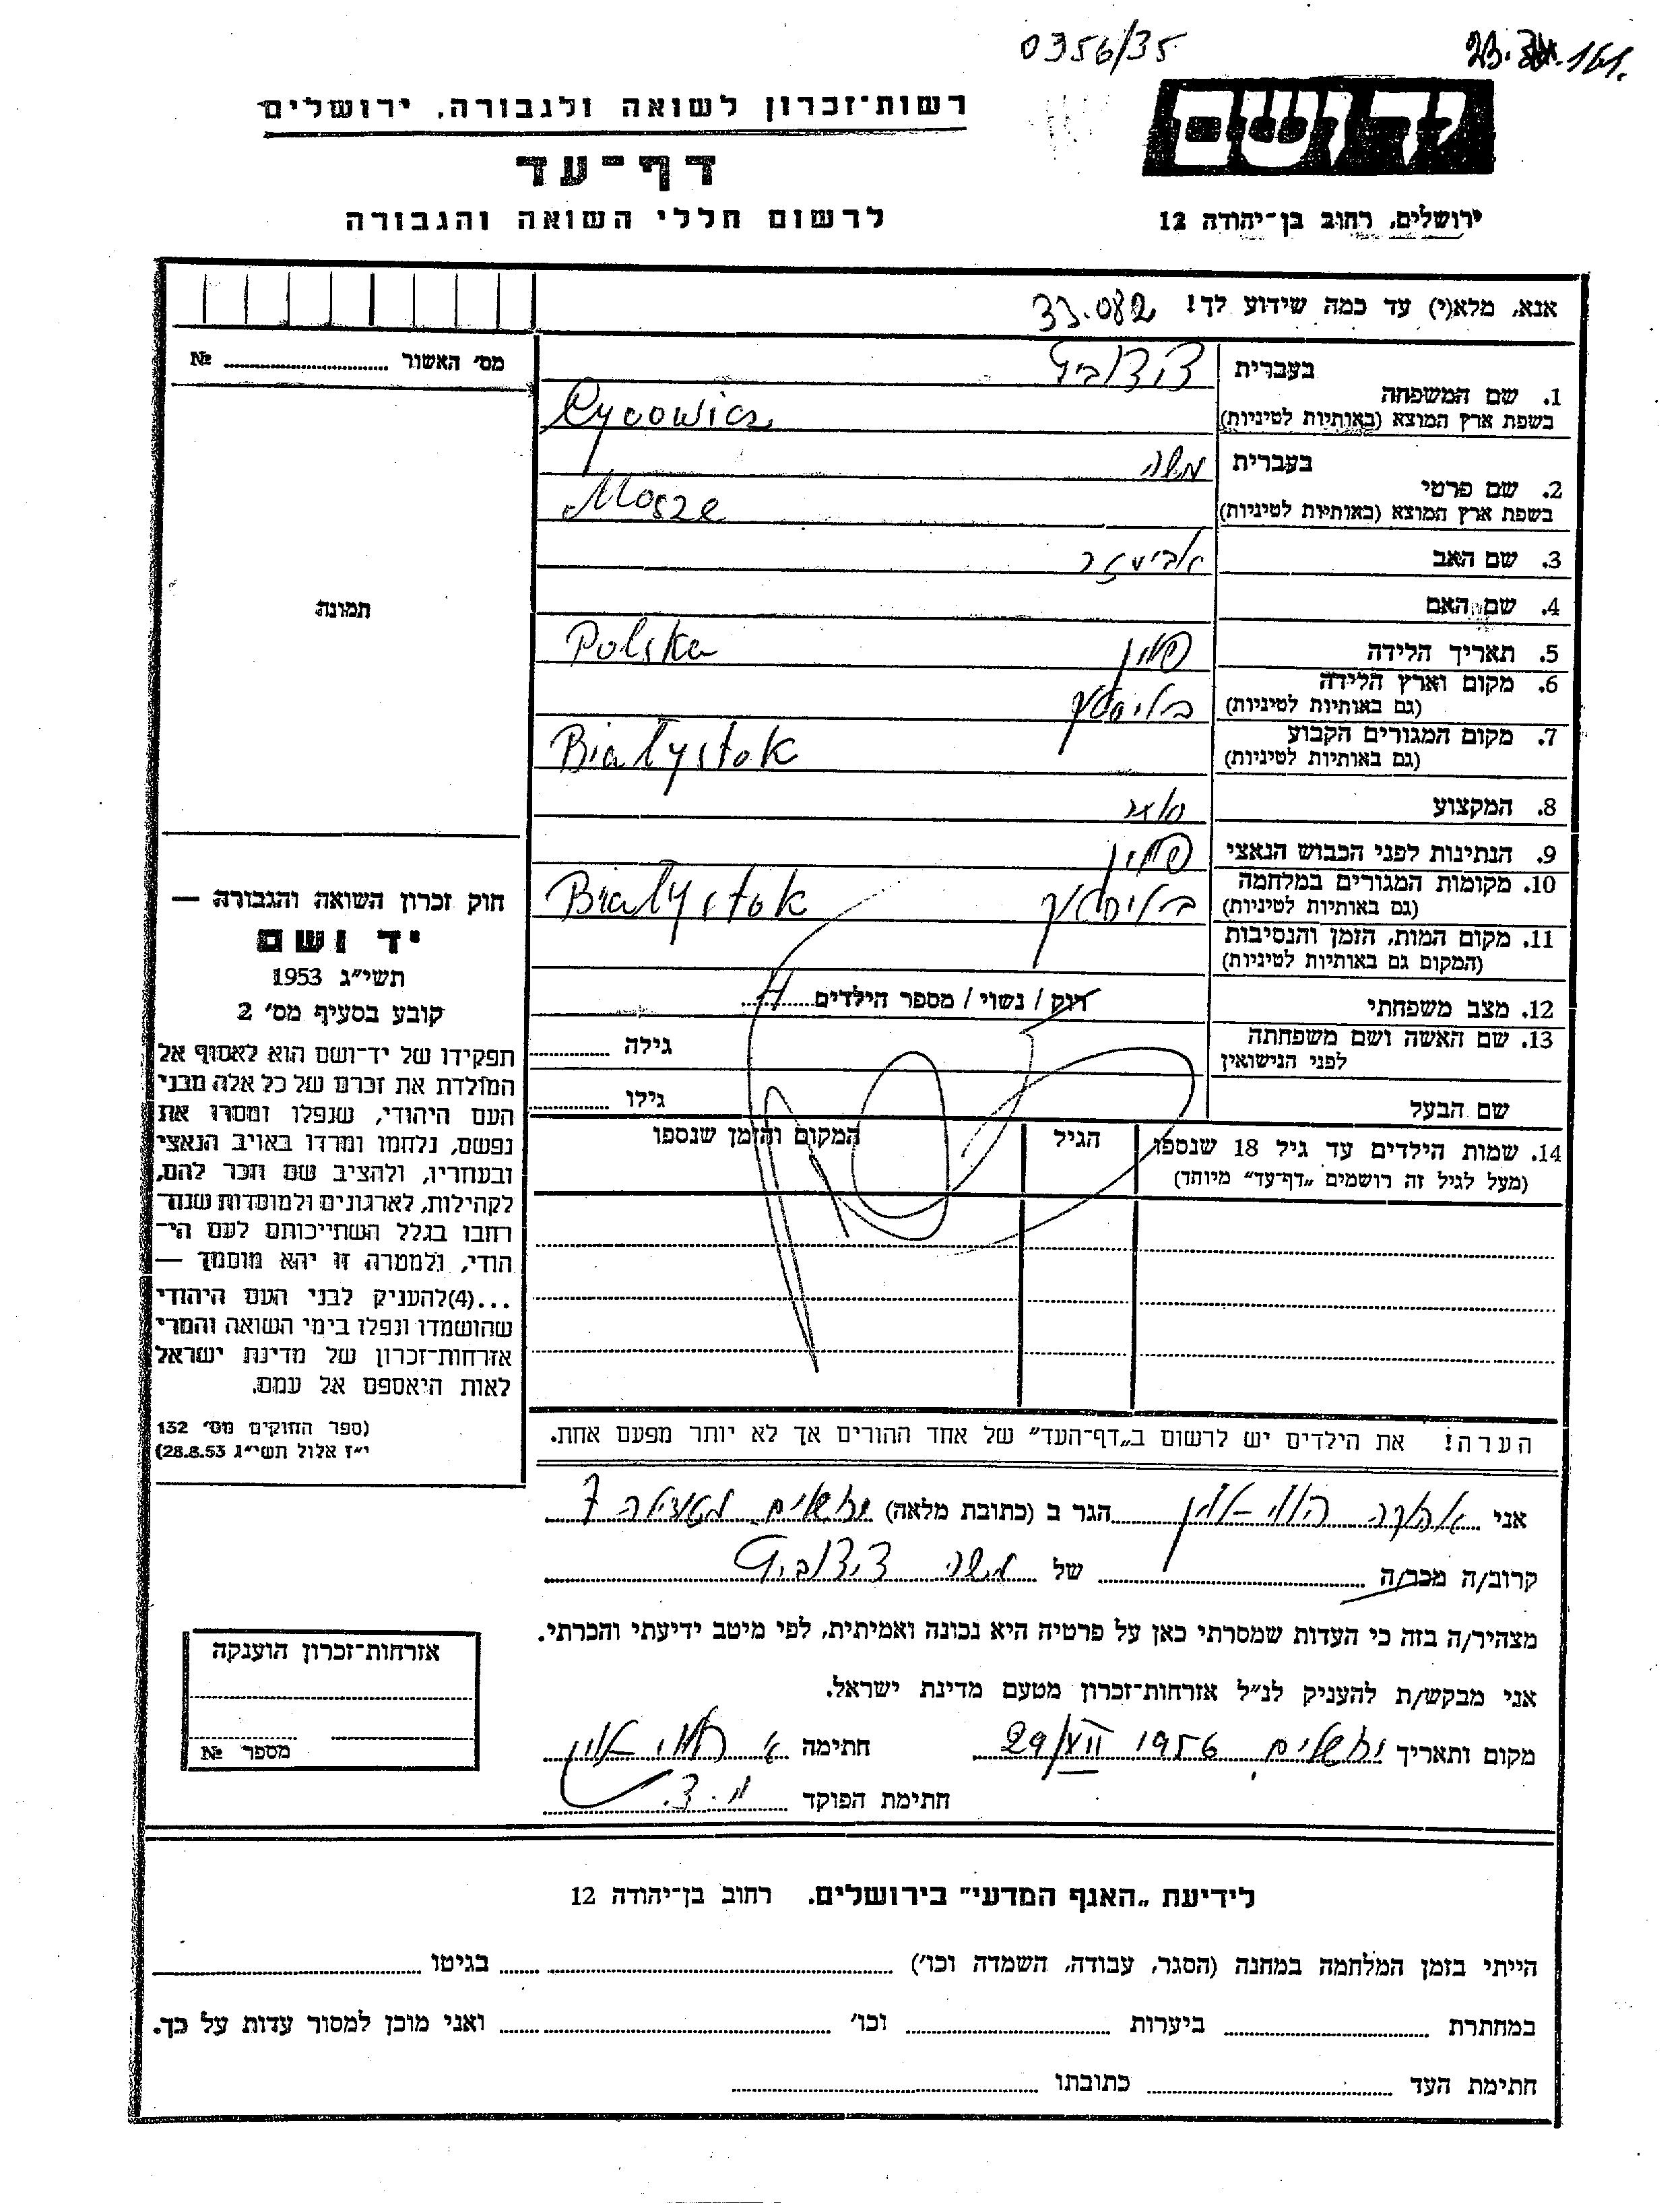 0356/35
23. XII. 161.
ידושם
רשות־זכרון לשואה ולגבורה, ירושלים
דף־עד
לרשום חללי השואה והגבורה
ירושלים, רחוב בן־יהודה 12
אנא, מלא(י) עד כמה שידוע לך! 33.082
מס׳ האשור № ........
תמונה
1. שם המשפחה
בעברית צוצוביץ
בשפת ארץ המוצא (באותיות לטיניות) Cycowicz
2. שם פרטי
בעברית משה
בשפת ארץ המוצא (באותיות לטיניות) Mosze
3. שם האב אביעזר
4. שם האם
5. תאריך הלידה
6. מקום וארץ הלידה פולין Polska
(גם באותיות לטיניות) ביליסטוק
7. מקום המגורים הקבוע
(גם באותיות לטיניות) Białystok
8. המקצוע סוחר
9. הנתינות לפני הכבוש הנאצי פולין
10. מקומות המגורים במלחמה
(גם באותיות לטיניות) ביליסטוק Białystok
11. מקום המות, הזמן והנסיבות
(המקום גם באותיות לטיניות)
12. מצב משפחתי רווק / נשוי / מספר הילדים 4
13. שם האשה ושם משפחתה גילה ........
לפני הנישואין
שם הבעל גילו ........
14. שמות הילדים עד גיל 18 שנספו הגיל המקום והזמן שנספו
(מעל לגיל זה רושמים „דף־עד” מיוחד)
חוק זכרון השואה והגבורה —
יד ושם
תשי״ג 1953
קובע בסעיף מס׳ 2
תפקידו של יד־ושם הוא לאסוף אל
המולדת את זכרם של כל אלה מבני
העם היהודי, שנפלו ומסרו את
נפשם, נלחמו ומרדו באויב הנאצי
ובעוזריו, ולהציב שם וזכר להם,
לקהילות, לארגונים ולמוסדות שנח־
רחבו בגלל השתייכותם לעם הי־
הודי, ולמטרה זו יהא מוסמך —
...(4)להעניק לבני העם היהודי
שהושמדו ונפלו בימי השואה והמרי
אזרחות־זכרון של מדינת ישראל
לאות היאספם אל עמם.
(ספר החוקים מס׳ 132
י״ז אלול תשי״ג 28.8.53)
הערה! את הילדים יש לרשום ב„דף־העד” של אחד ההורים אך לא יותר מפעם אחת.
אני הלוי־ הגר ב (כתובת מלאה) ירושלים 7
קרוב/ה מכר/ה ........ של משה צוצוביץ
מצהיר/ה בזה כי העדות שמסרתי כאן על פרטיה היא נכונה ואמיתית, לפי מיטב ידיעתי והכרתי.
אני מבקש/ת להעניק לנ״ל אזרחות־זכרון מטעם מדינת ישראל.
מקום ותאריך ירושלים 1956 29/XII חתימה א הלוי־
חתימת הפוקד
אזרחות־זכרון הוענקה
מספר №
לידיעת „האגף המדעי” בירושלים. רחוב בן־יהודה 12
הייתי בזמן המלחמה במחנה (הסגר, עבודה, השמדה וכו׳) ........ בגיטו ........
במחתרת ........ ביערות ........ וכו׳ ........ ואני מוכן למסור עדות על כך.
חתימת העד ........ כתובתו ........